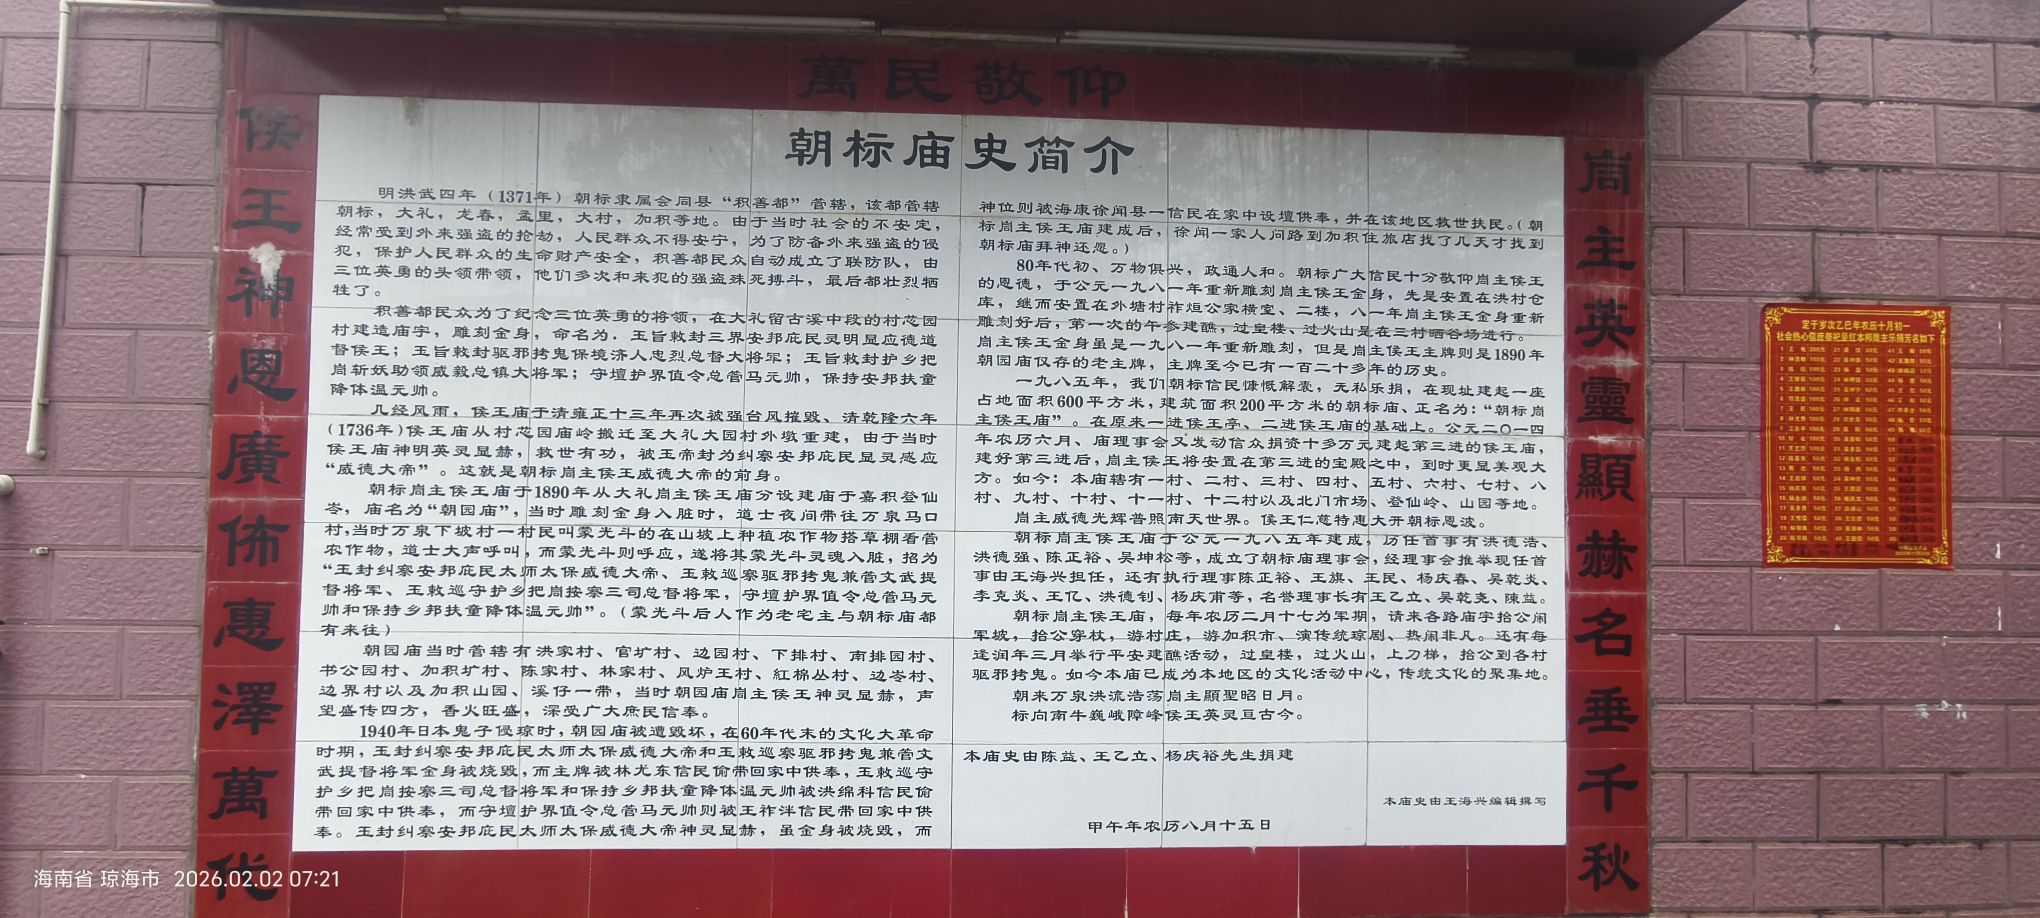 萬民敬仰
侯王神恩廣佈惠澤萬代
朝标庙史简介
明洪武四年（1371年）朝标隶属会同县“积善都”管辖，该都管辖
朝标，大礼，龙春，孟里，大村，加积等地。由于当时社会的不安定，
经常受到外来强盗的抢劫，人民群众不得安宁，为了防备外来强盗的侵
犯，保护人民群众的生命财产安全，积善都民众自动成立了联防队，由
三位英勇的头领带领，他们多次和来犯的强盗殊死搏斗，最后都壮烈牺
牲了。
积善都民众为了纪念三位英勇的将领，在大礼留古溪中段的村芯园
村建造庙宇，雕刻金身，命名为．玉旨敕封三界安邦庇民灵明显应德道
督侯王；玉旨敕封驱邪拷鬼保境济人忠烈总督大将军；玉旨敕封护乡把
峝斩妖助领威毅总镇大将军；守壇护界值令总营马元帅，保持安邦扶童
降体温元帅。
几经风雨，侯王庙于清雍正十三年再次被强台风摧毁、清乾隆六年
(1736年)侯王庙从村芯园庙岭搬迁至大礼大园村外墩重建，由于当时
侯王庙神明英灵显赫，救世有功，被玉帝封为纠察安邦庇民显灵感应
“威德大帝”。这就是朝标峝主侯王威德大帝的前身。
朝标峝主侯王庙于1890年从大礼峝主侯王庙分设建庙于嘉积登仙
岺，庙名为“朝园庙”，当时雕刻金身入脏时，道士夜间带往万泉马口
村,当时万泉下坡村一村民叫蒙光斗的在山坡上种植农作物搭草棚看管
农作物，道士大声呼叫，而蒙光斗则呼应，遂将其蒙光斗灵魂入脏，招为
“玉封纠察安邦庇民太师太保威德大帝、玉敕巡察驱邪拷鬼兼营文武提
督将军、玉敕巡守护乡把峝按察三司总督将军，守壇护界值令总营马元
帅和保持乡邦扶童降体温元帅”。（蒙光斗后人作为老宅主与朝标庙都
有来往）
朝园庙当时管辖有洪家村、官圹村、边园村、下排村、南排园村、
书公园村、加积圹村、陈家村、林家村、风炉王村、红棉丛村、边岺村、
边界村以及加积山园、溪仔一带，当时朝园庙峝主侯王神灵显赫，声
望盛传四方，香火旺盛，深受广大庶民信奉。
1940年日本鬼子侵琼时，朝园庙被遭毁坏，在60年代末的文化大革命
时期，玉封纠察安邦庇民太师太保威德大帝和玉敕巡察驱邪拷鬼兼营文
武提督将军金身被烧毁，而主牌被林尤东信民偷带回家中供奉，玉敕巡守
护乡把峝按察三司总督将军和保持乡邦扶童降体温元帅被洪绵科信民偷
带回家中供奉，而守壇护界值令总营马元帅则被王祚泮信民带回家中供
奉。玉封纠察安邦庇民太师太保威德大帝神灵显赫，虽金身被烧毁，而
神位则被海康徐闻县一信民在家中设壇供奉，并在该地区救世扶民。（朝
标峝主侯王庙建成后，徐闻一家人问路到加积住旅店找了几天才找到
朝标庙拜神还愿。）
80年代初、万物俱兴，政通人和。朝标广大信民十分敬仰峝主侯王
的恩德，于公元一九八一年重新雕刻峝主侯王金身，先是安置在洪村仓
库，继而安置在外塘村祚烜公家横室、二楼，八一年峝主侯王金身重新
雕刻好后，第一次的午参建醮，过皇楼、过火山是在三村晒谷场进行。
峝主侯王金身虽是一九八一年重新雕刻，但是峝主侯王主牌则是1890年
朝园庙仅存的老主牌，主牌至今已有一百二十多年的历史。
一九八五年，我们朝标信民慷慨解囊，无私乐捐，在现址建起一座
占地面积600平方米，建筑面积200平方米的朝标庙、正名为：“朝标峝
主侯王庙”。在原来一进侯王亭、二进侯王庙的基础上。公元二〇一四
年农历六月、庙理事会又发动信众捐资十多万元建起第三进的侯王庙，
建好第三进后，峝主侯王将安置在第三进的宝殿之中，到时更显美观大
方。如今：本庙辖有一村、二村、三村、四村、五村、六村、七村、八
村、九村、十村、十一村、十二村以及北门市场、登仙岭、山园等地。
峝主威德光辉普照南天世界。侯王仁慈特惠大开朝标恩波。
朝标峝主侯王庙于公元一九八五年建成，历任首事有洪德浩、
洪德强、陈正裕、吴坤松等，成立了朝标庙理事会，经理事会推举现任首
事由王海兴担任，还有执行理事陈正裕、王旗、王民、杨庆春、吴乾炎、
李克炎、王亿、洪德钊、杨庆甫等，名誉理事长有王乙立、吴乾尧、陈益。
朝标峝主侯王庙，每年农历二月十七为军期，请来各路庙宇抬公闹
军坡，抬公穿杖，游村庄，游加积市、演传统琼剧、热闹非凡。还有每
逢润年三月举行平安建醮活动，过皇楼，过火山，上刀梯，抬公到各村
驱邪拷鬼。如今本庙已成为本地区的文化活动中心，传统文化的聚集地。
朝来万泉洪流浩荡峝主顯聖昭日月。
标向南牛巍峨障峰侯王英灵亘古今。
本庙史由陈益、王乙立、杨庆裕先生捐建
本庙史由王海兴编辑撰写
甲午年农历八月十五日
峝主英靈顯赫名垂千秋
定于岁次乙巳年农历十月初一
海南省 琼海市 2026.02.02 07:21